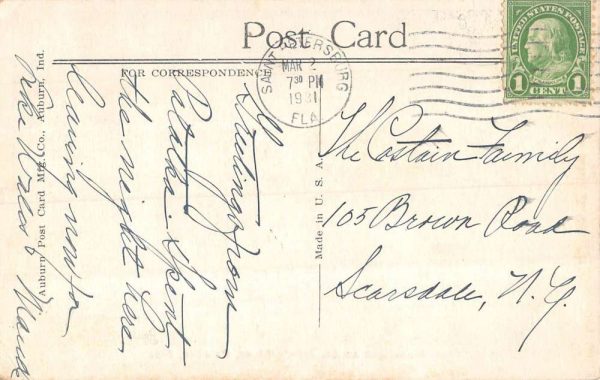 Post Card
FOR CORRESPONDENCE
SAINT PETERSBURG
MAR 2
7 30 PM
1931
FLA
UNITED STATES POSTAGE
1 1
CENT
Greetings from
Palatka. Spent
the night here,
leaving now for
Auburn Post Card Mfg. Co., Auburn, Ind.
Made in U. S. A.
The Costain Family
105 Brown Road
Scarsdale, N.Y.